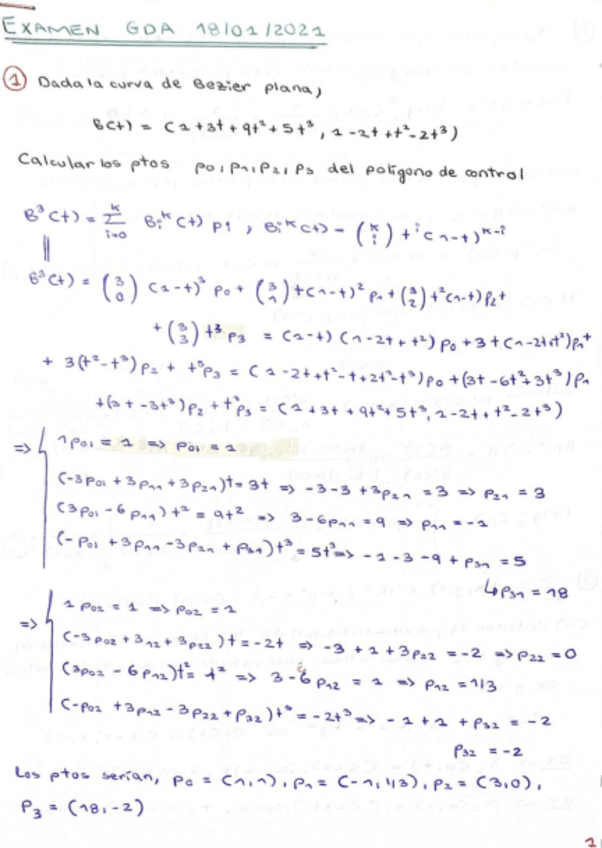 EXAMEN GDA 18/01/2021
① Dada la curva de Bezier plana,
B(t) = (1+3t+9t²+5t³, 1-2t+t²-2t³)
Calcular los ptos p0, p1, p2, p3 del polígono de control
B³(t) = Σ_{i=0}^{k} B_i^k(t) p_i, B_i^k(t) = (k i) t^i (1-t)^{k-i}
||
B³(t) = (3 0) (1-t)³ p0 + (3 1) t(1-t)² p1 + (3 2) t²(1-t) p2 +
+ (3 3) t³ p3 = (1-t) (1-2t+t²) p0 + 3t (1-2t+t²) p1 +
+ 3(t²-t³) p2 + t³ p3 = (1-2t+t²-t+2t²-t³) p0 + (3t-6t²+3t³) p1
+ (3t-3t³) p2 + t³ p3 = (1+3t+9t²+5t³, 1-2t+t²-2t³)
1p01 = 1 => p01 = 1
=> (-3p01 + 3p11 + 3p21) t = 3t => -3-3+3p21 = 3 => p21 = 3
(3p01 - 6p11) t² = 9t² => 3-6p11 = 9 => p11 = -1
(-p01 + 3p11 - 3p21 + p31) t³ = 5t³ => -1-3-9+p31 = 5
↳ p31 = 18
1p02 = 1 => p02 = 1
=> (-3p02 + 3p12 + 3p22) t = -2t => -3+1+3p22 = -2 => p22 = 0
(3p02 - 6p12) t² = t² => 3-6p12 = 1 => p12 = 1/3
(-p02 + 3p12 - 3p22 + p32) t³ = -2t³ => -1+1+p32 = -2
p32 = -2
Los ptos serían, p0 = (1,1), p1 = (-1,1/3), p2 = (3,0),
P3 = (18,-2)
1